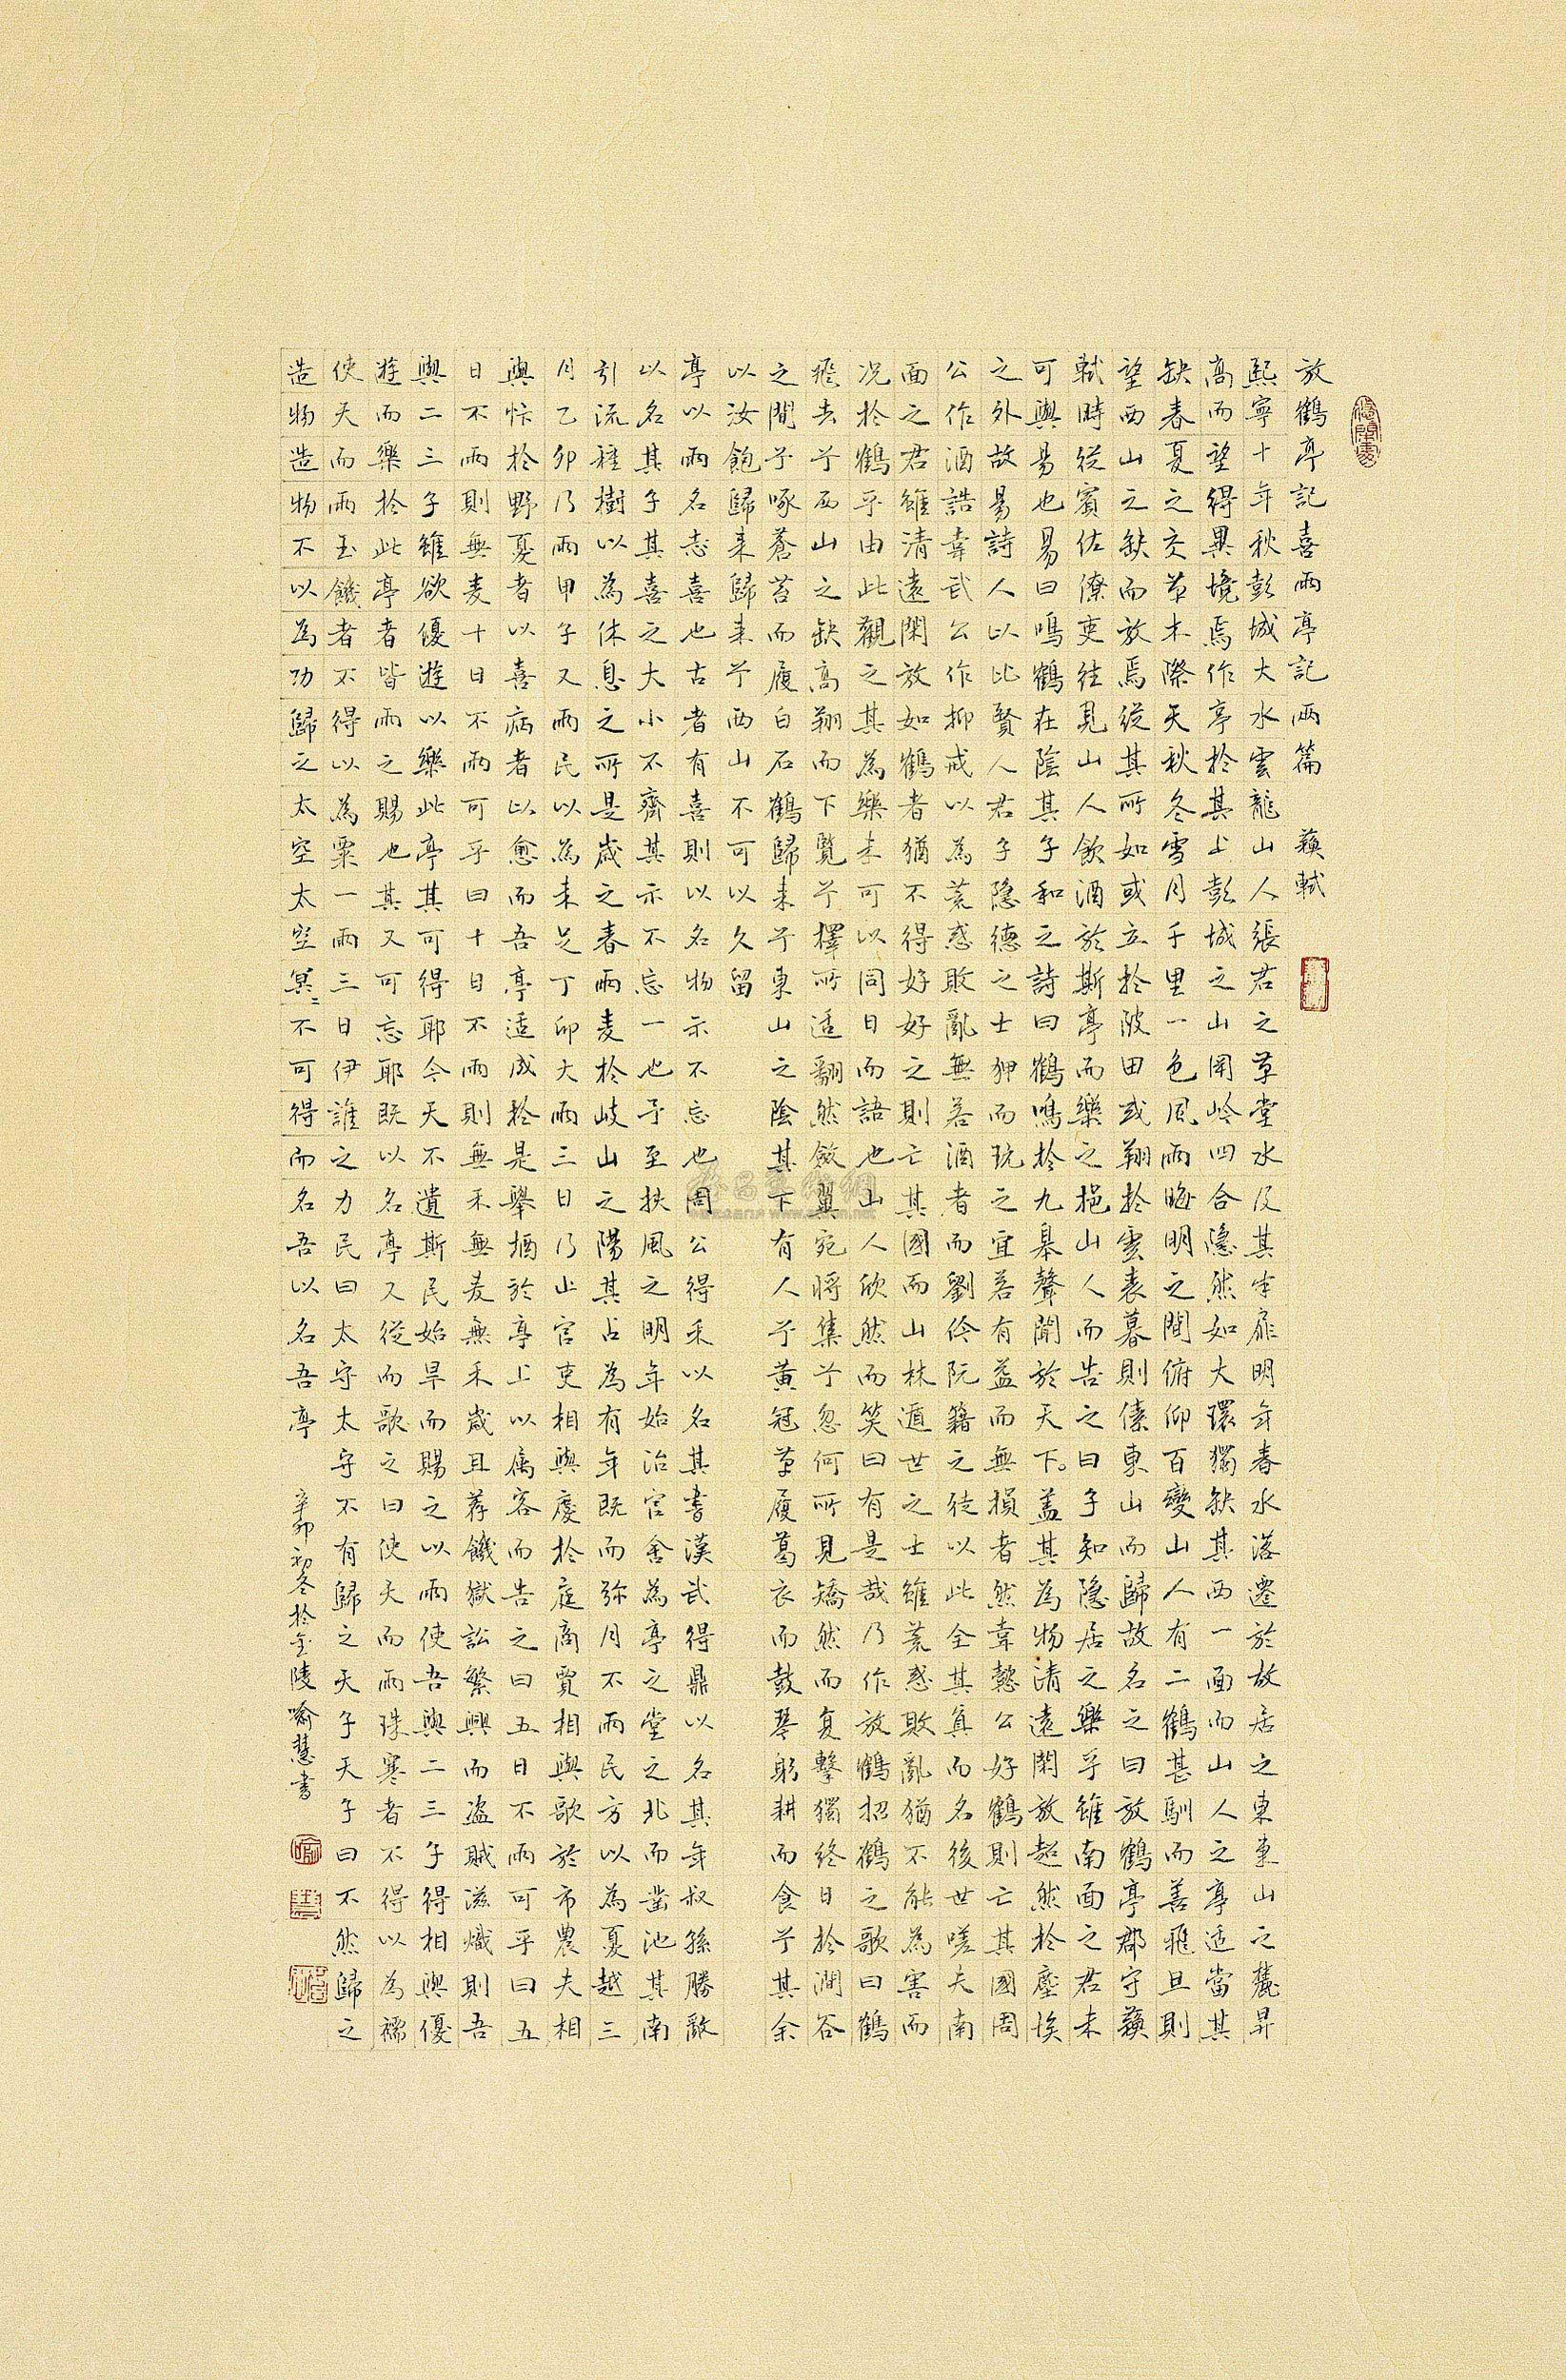 放鶴亭記喜雨亭記兩篇 蘇軾
熙寧十年秋彭城大水雲龍山人張君之草堂水及其半扉明年春水落遷於故居之東東山之麓昇
高而望得異境焉作亭於其上彭城之山岡岭四合隱然如大環獨缺其西一面而山人之亭适當其
缺春夏之交草木際天秋冬雪月千里一色風雨晦明之間俯仰百變山人有二鶴甚馴而善飛旦則
望西山之缺而放焉從其所如或立於陂田或翔於雲表暮則傃東山而歸故名之曰放鶴亭郡守蘇
軾時從賓佐僚吏往見山人飲酒於斯亭而樂之挹山人而告之曰子知隱居之樂乎雖南面之君未
可與易也易曰鳴鶴在陰其子和之詩曰鶴鳴於九皋聲聞於天下。盖其為物清遠閑放超然於塵埃
之外故易詩人以比賢人君子隱德之士狎而玩之宜若有益而無損者然韋懿公好鶴則亡其國周
公作酒誥韋武公作抑戒以為荒惑敗亂無若酒者而劉伶阮籍之徒以此全其真而名後世嗟夫南
面之君雖清遠閑放如鶴者猶不得好好之則亡其國而山林遁世之士雖荒惑敗亂猶不能為害而
况於鶴乎由此觀之其為樂未可以同日而語也山人欣然而笑曰有是哉乃作放鶴招鶴之歌曰鶴
飛去兮西山之缺高翔而下覽兮擇所适翻然斂翼宛將集兮忽何所見矯然而复擊獨終日於澗谷
之間兮啄蒼苔而履白石鶴歸来兮東山之陰其下有人兮黃冠草履葛衣而鼓琴躬耕而食兮其余
以汝飽歸来歸来兮西山不可以久留
亭以雨名志喜也古者有喜則以名物示不忘也周公得禾以名其書漢武得鼎以名其年叔孫勝敵
以名其子其喜之大小不齊其示不忘一也予至扶風之明年始治官舍為亭之堂之北而鑿池其南
引流種樹以為休息之所是歲之春雨麦於岐山之陽其占為有年既而弥月不雨民方以為憂越三
月乙卯乃雨甲子又雨民以為未足丁卯大雨三日乃止官吏相與慶於庭商賈相與歌於市農夫相
與忭於野憂者以喜病者以愈而吾亭适成於是舉酒於亭上以属客而告之曰五日不雨可乎曰五
日不雨則無麦十日不雨可乎曰十日不雨則無禾無麦無禾歲且荐饑獄訟繁興而盜賊滋熾則吾
與二三子雖欲優遊以樂此亭其可得耶今天不遺斯民始旱而賜之以雨使吾與二三子得相與優
遊而樂於此亭者皆雨之賜也其又可忘耶既以名亭又從而歌之曰使天而雨珠寒者不得以為襦
使天而雨玉饑者不得以為粟一雨三日伊誰之力民曰太守太守不有歸之天子天子曰不然歸之
造物造物不以為功歸之太空太空冥〻不可得而名吾以名吾亭
辛卯初冬於金陵喻慧書